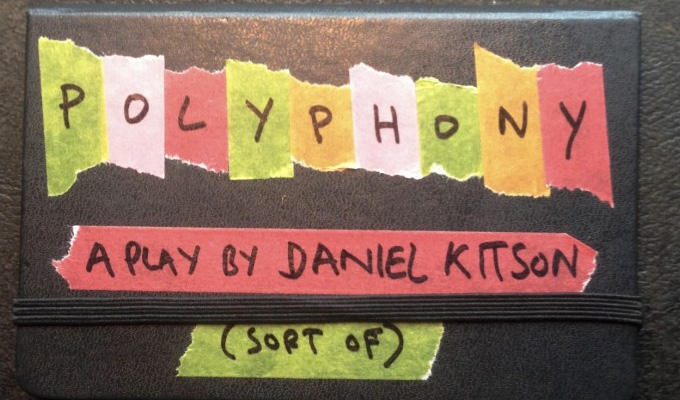 POLYPHONY
A PLAY BY DANIEL KITSON
(SORT OF)